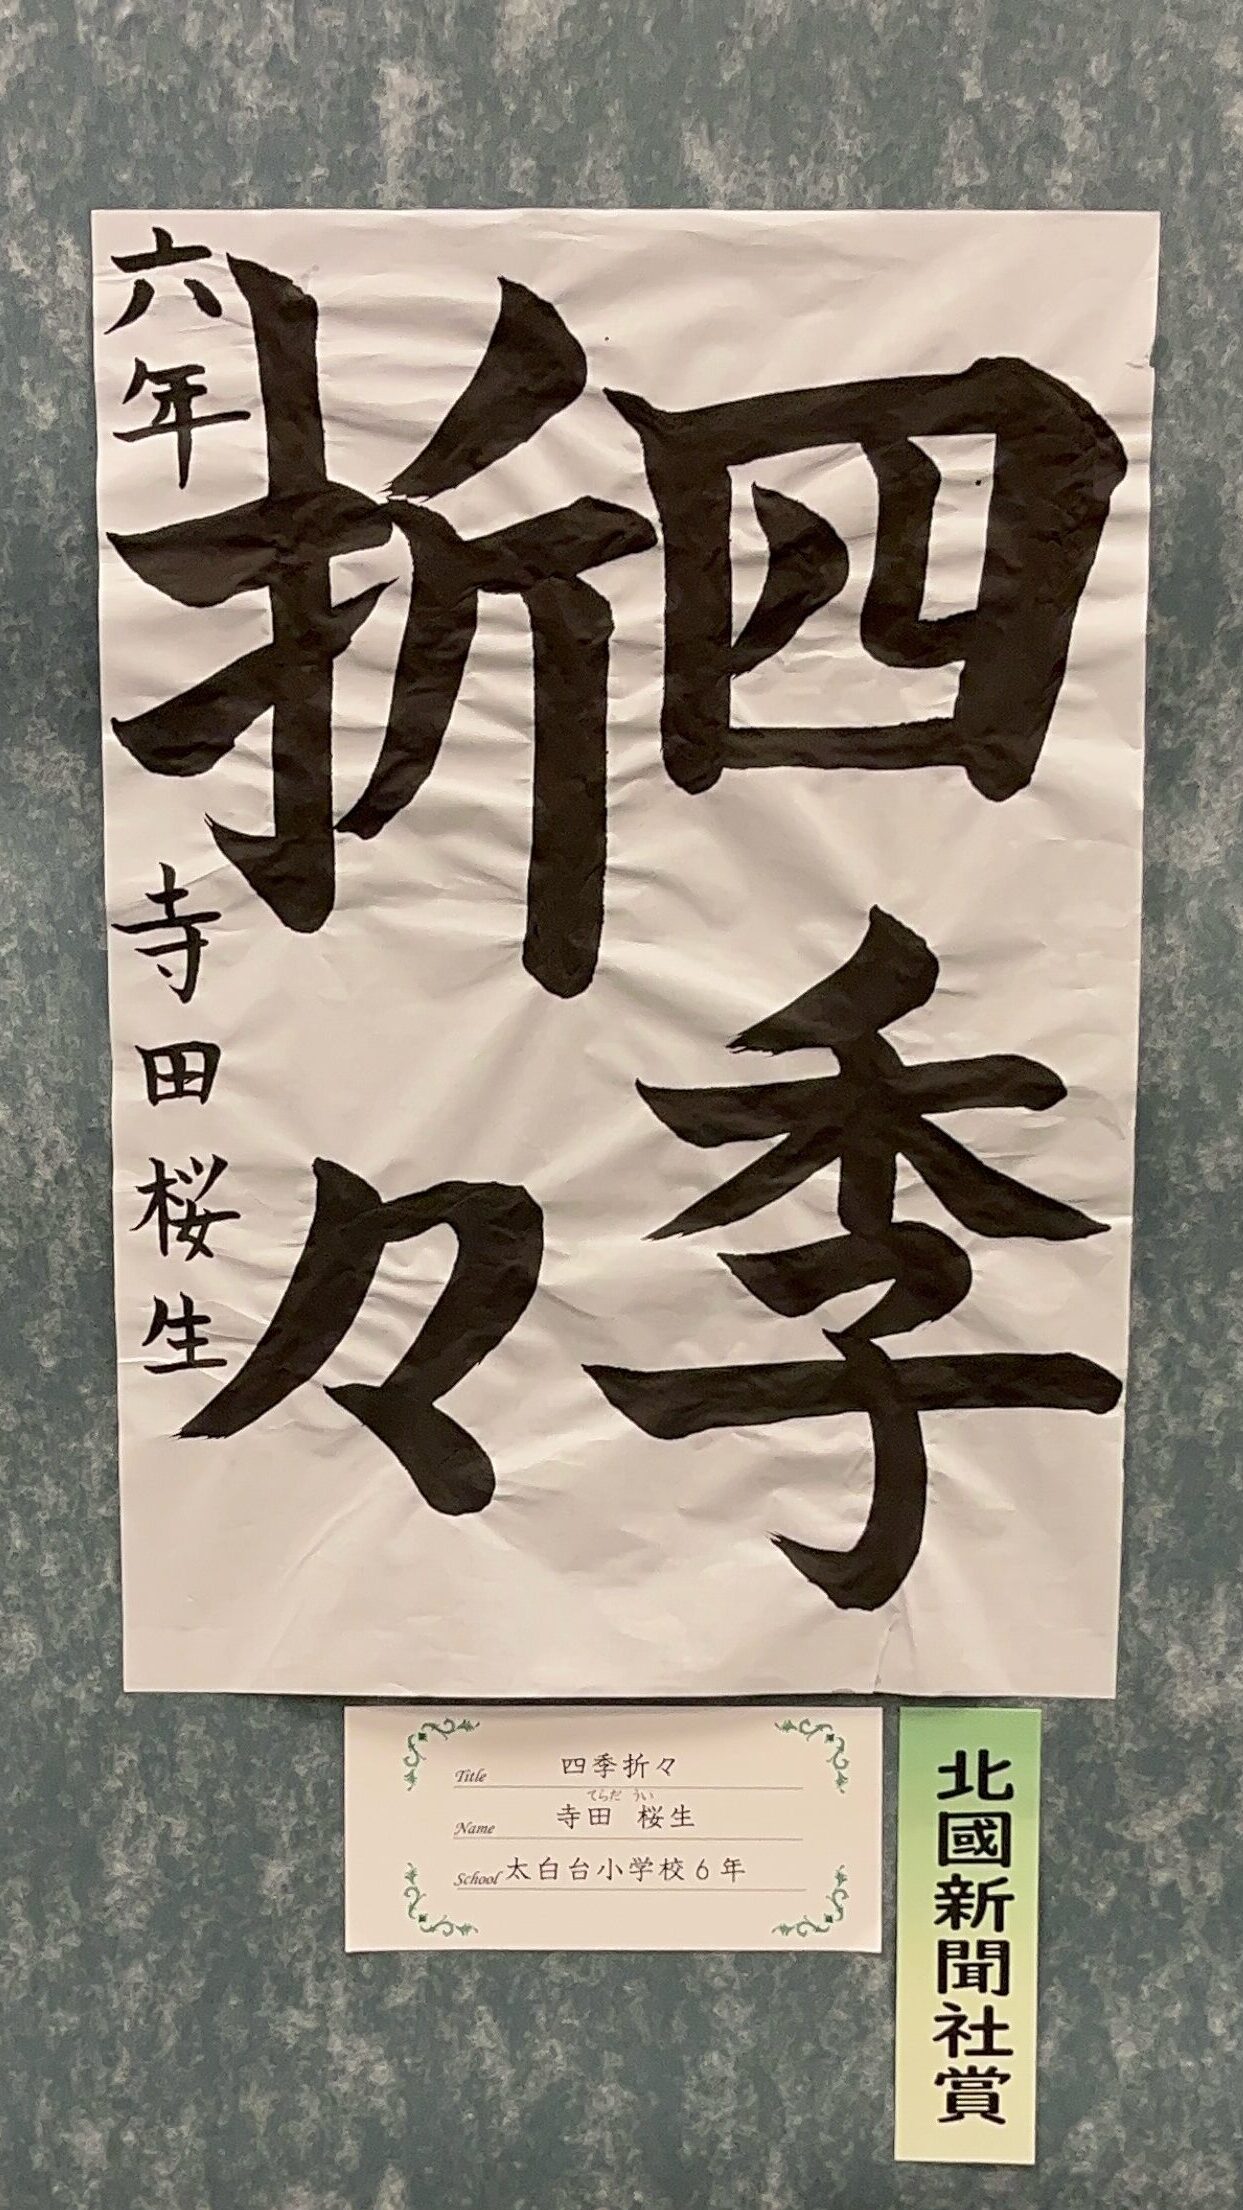 四季
折々
六年 寺田桜生
Title 四季折々
てらだ うい
Name 寺田 桜生
School 太白台小学校6年
北國新聞社賞